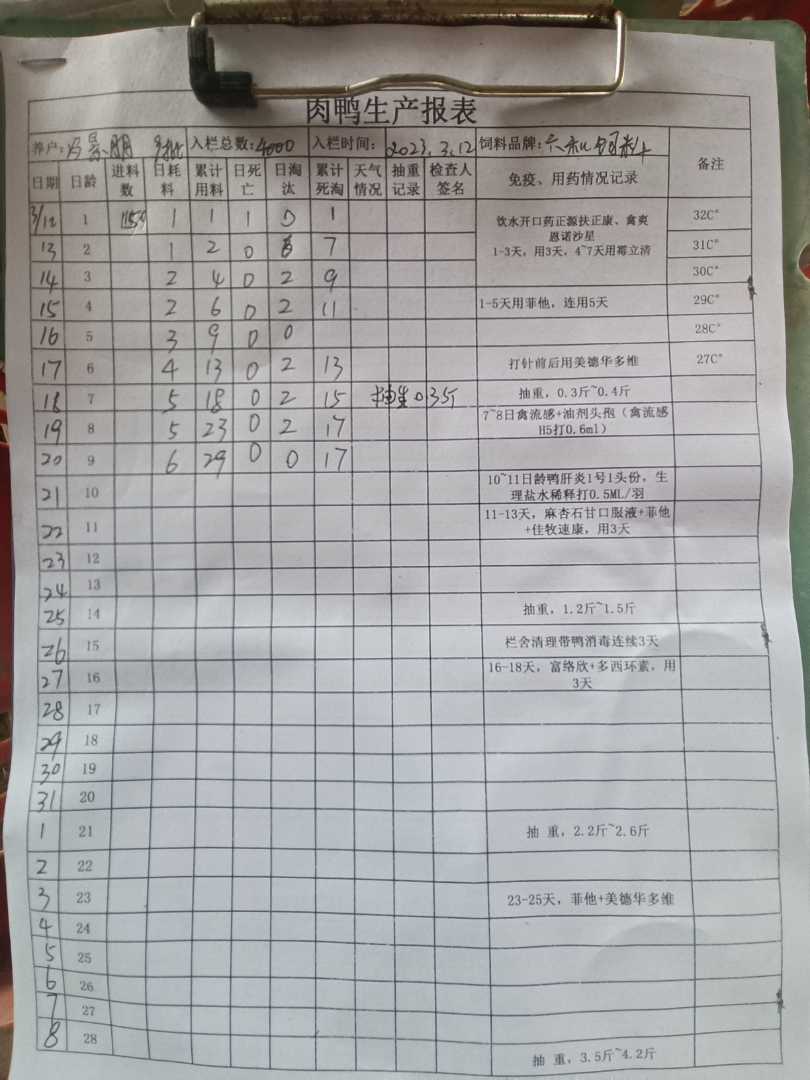 肉鸭生产报表
养户: 入栏总数:4000 入栏时间: 2023.3.12 饲料品牌:六和饲料 备注
日期 日龄 进料数 日耗料 累计用料 日死亡 日淘汰 累计死淘 天气情况 抽重记录 检查人签名 免疫、用药情况记录
3/12 1 1 1 1 0 1 饮水开口药正源扶正康、禽爽 32C°
恩诺沙星
13 2 1 2 0 7 1-3天，用3天，4~7天用霉立清 31C°
14 3 2 4 0 2 9 30C°
15 4 2 6 0 2 11 1-5天用菲他，连用5天 29C°
16 5 3 9 0 0 28C°
17 6 4 13 0 2 13 打针前后用美德华多维 27C°
18 7 5 18 0 2 15 抽重0.3斤 抽重，0.3斤~0.4斤
19 8 5 23 0 2 17 7~8日禽流感+油剂头孢（禽流感
H5打0.6ml）
20 9 6 29 0 0 17
21 10 10~11日龄鸭肝炎1号1头份，生
理盐水稀释打0.5ML/羽
22 11 11-13天，麻杏石甘口服液+菲他
+佳牧速康，用3天
23 12
24 13
25 14 抽重，1.2斤~1.5斤
26 15 栏舍清理带鸭消毒连续3天
27 16 16-18天，富络欣+多西环素，用
3天
28 17
29 18
30 19
31 20
1 21 抽 重，2.2斤~2.6斤
2 22
3 23 23-25天，菲他+美德华多维
4 24
5 25
6 26
7 27
8 28 抽 重，3.5斤~4.2斤